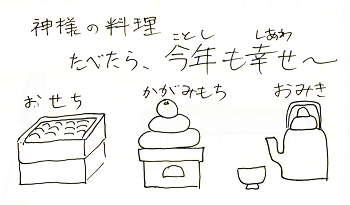 神様の料理
たべたら、今年も幸せ〜
ことし
しあわ
おせち
かがみもち
おみき